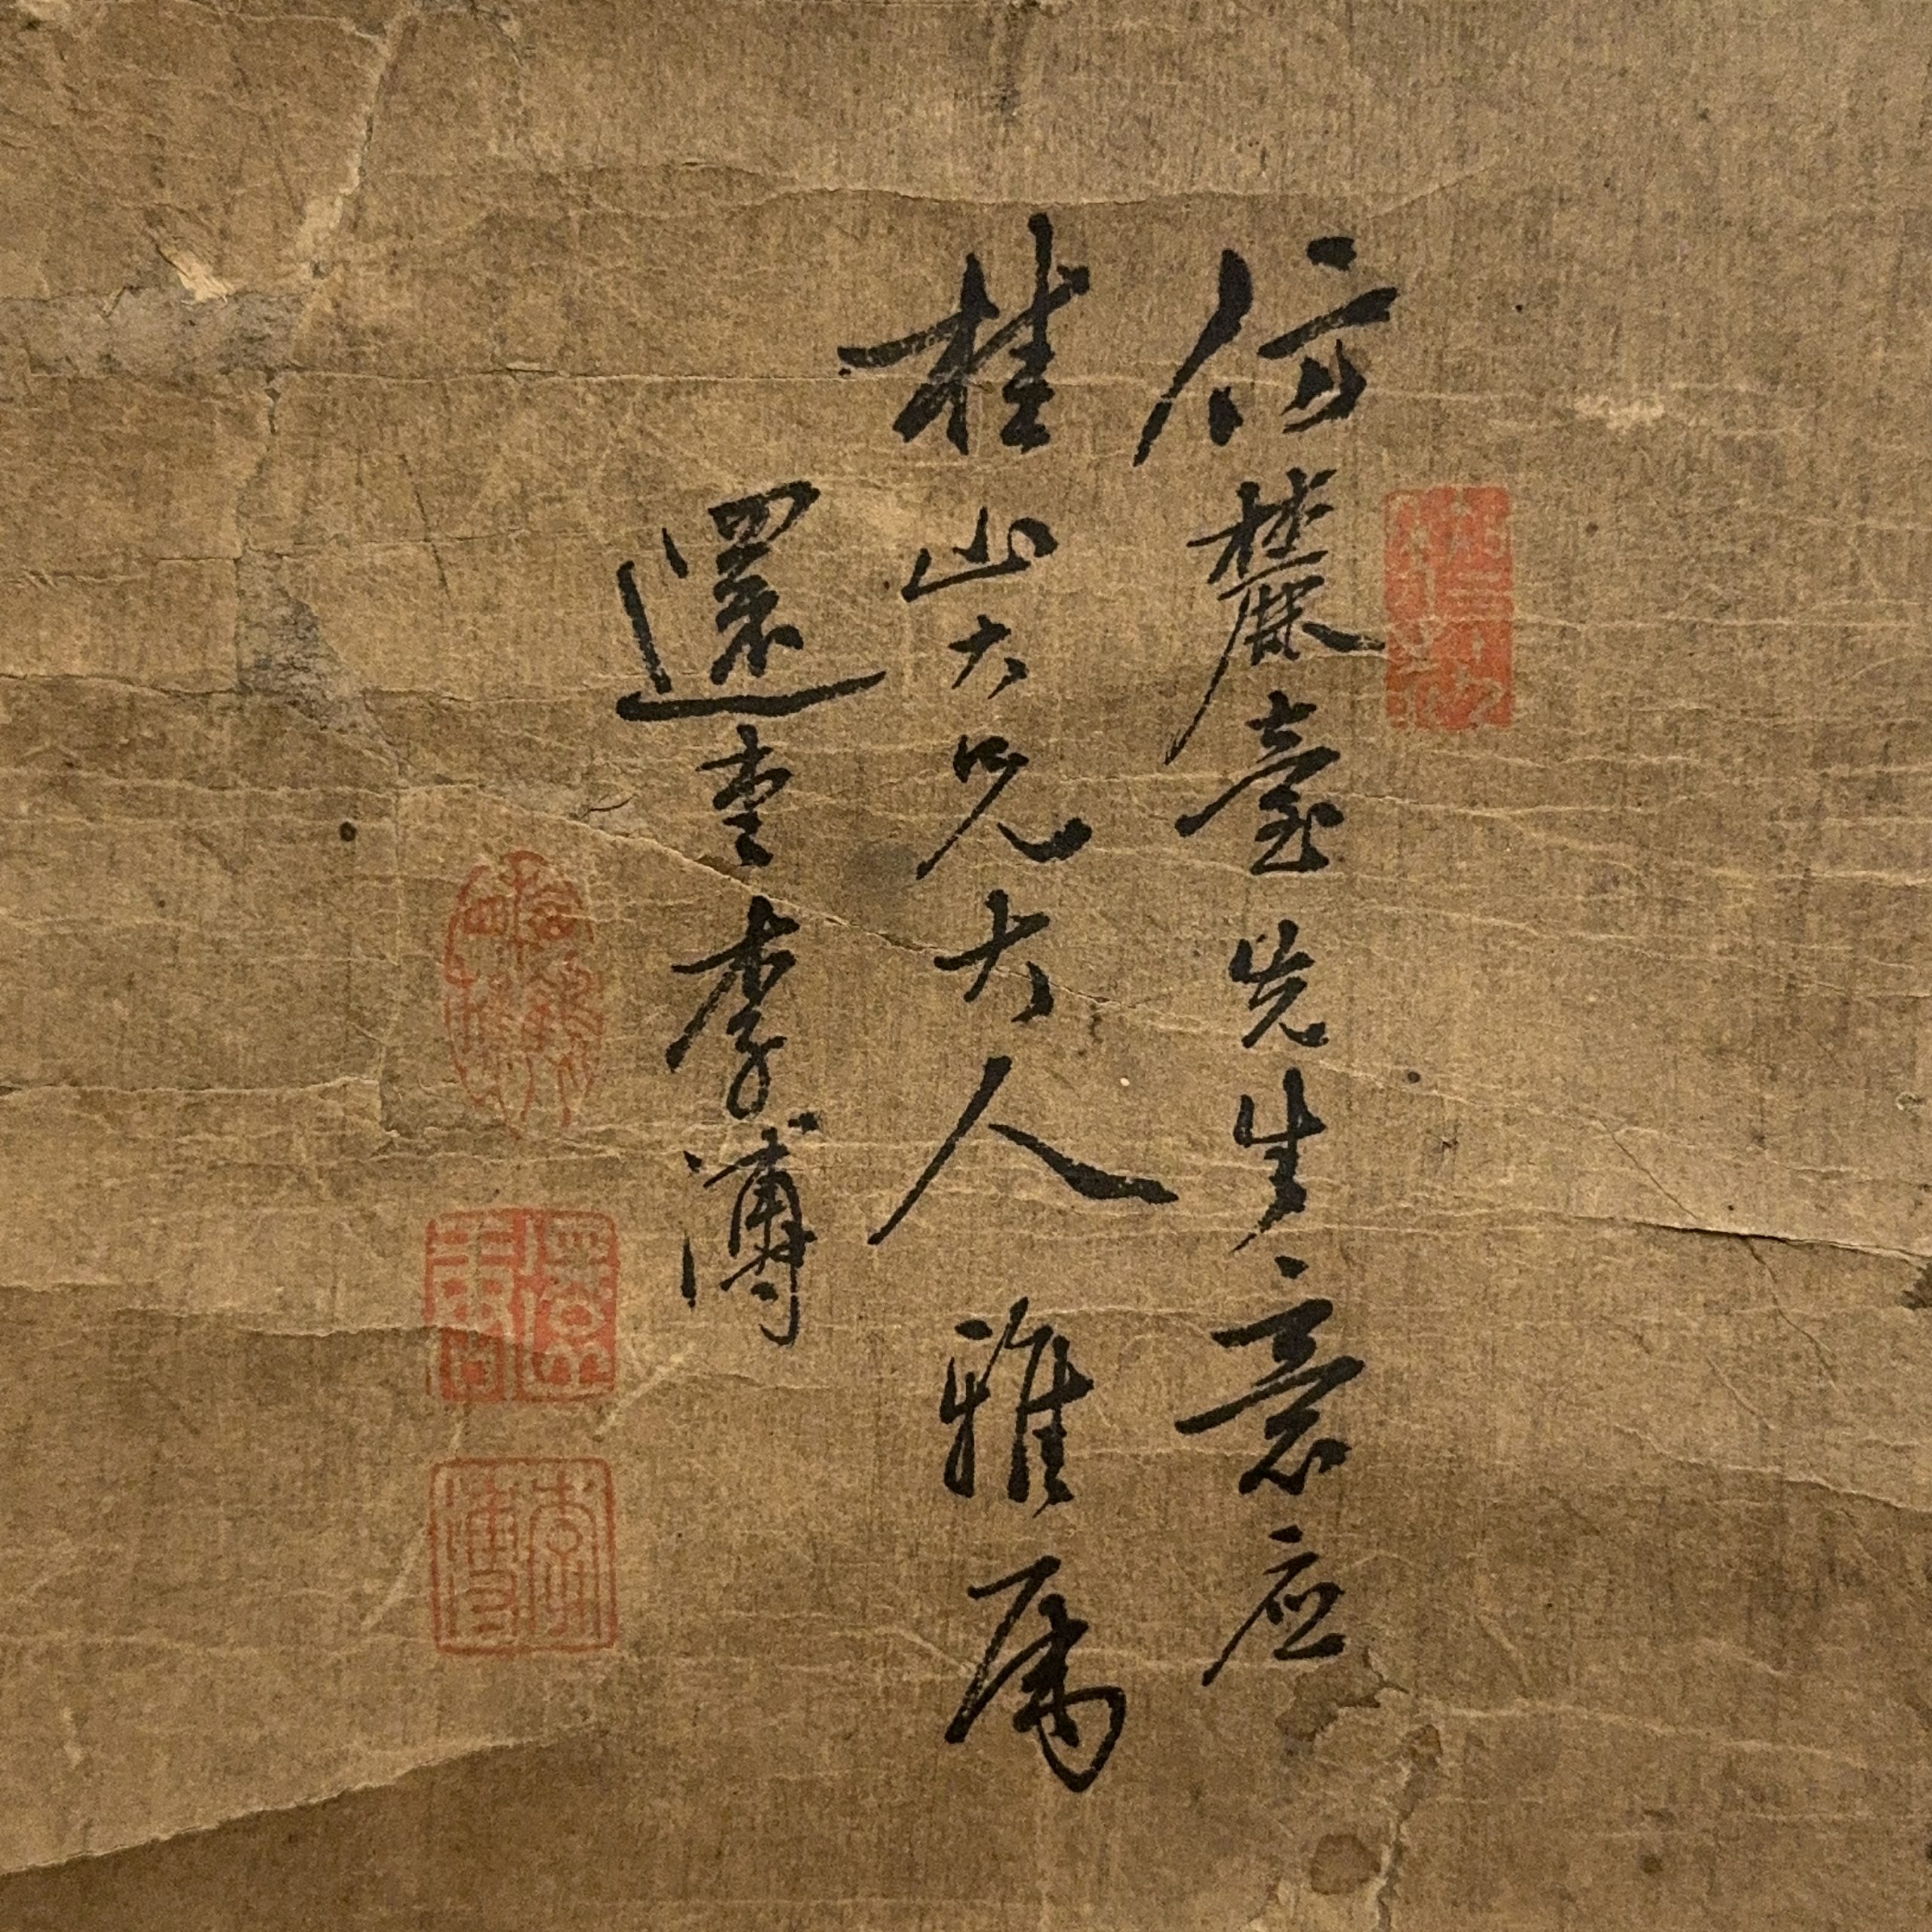 仿麓臺先生意应
桂山大兄大人雅属
還李溥
李溥